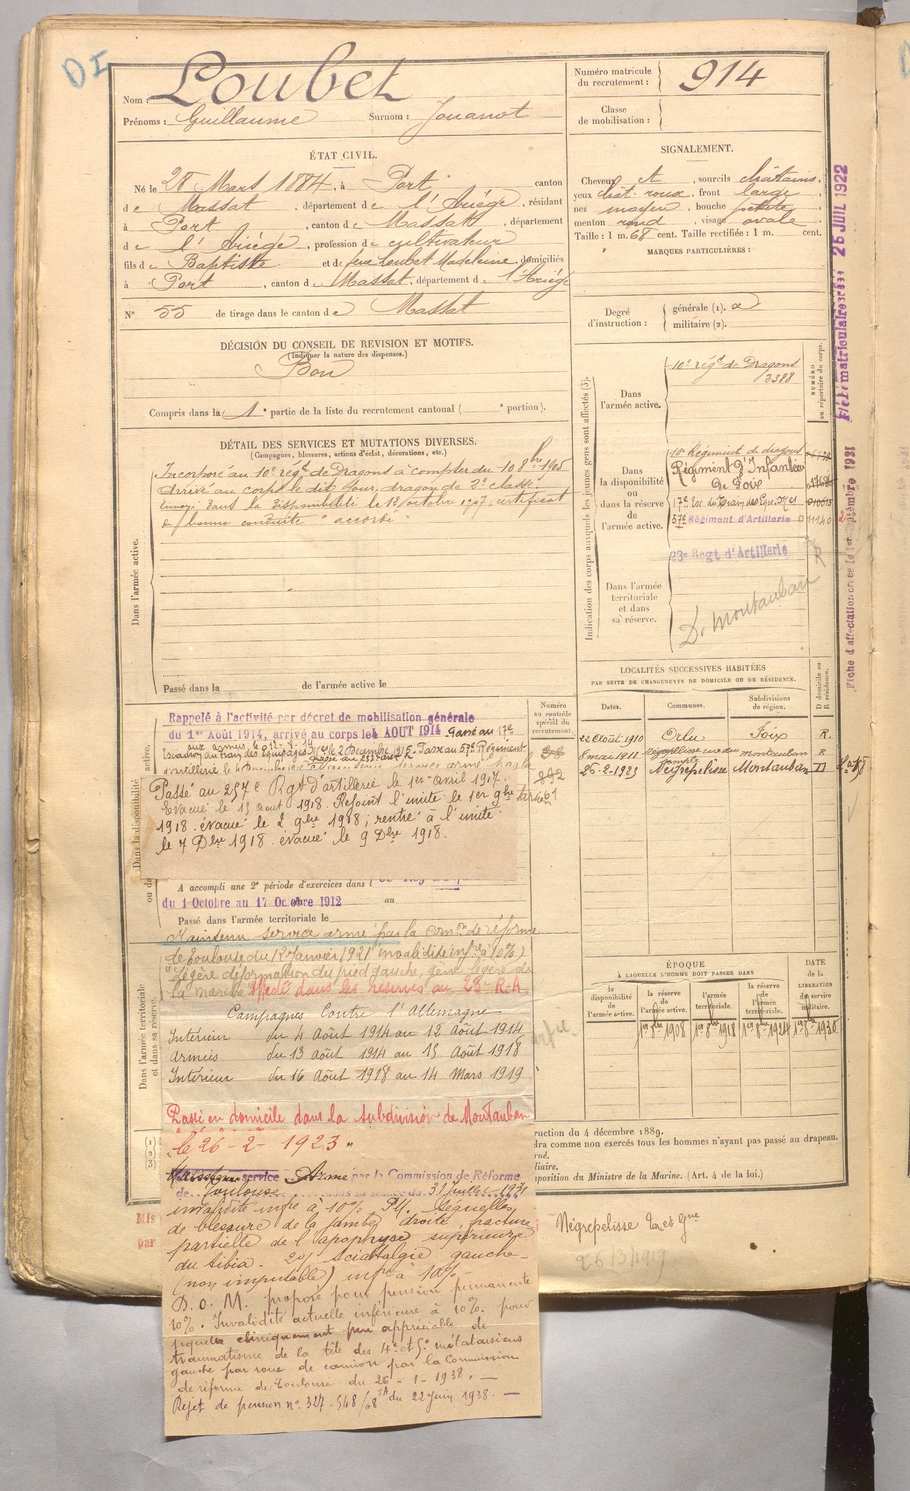 DI
Nom : Loubet
Prénoms : Guillaume Surnom : Jouanot
Numéro matricule du recrutement : 914
Classe de mobilisation :
ÉTAT CIVIL.
Né le 28 Mars 1884, à Port canton
de Massat, département de l'Ariège, résidant
à Port, canton de Massat, département
de l'Ariège, profession de cultivateur
fils de Baptiste et de feue Loubet Madeleine, domiciliés
à Port, canton de Massat, département de l'Ariège
N° 55 de tirage dans le canton de Massat
SIGNALEMENT.
Cheveux ct, sourcils châtains.
yeux chât. roux, front large
nez moyen, bouche petite
menton rond, visage ovale
Taille : 1 m. 68 cent. Taille rectifiée : 1 m. cent.
MARQUES PARTICULIÈRES :
Degré d'instruction : générale (1).
militaire (2).
DÉCISION DU CONSEIL DE REVISION ET MOTIFS.
(Indiquer la nature des dispenses.)
Bon
Compris dans la 1e partie de la liste du recrutement cantonal ( e portion).
DÉTAIL DES SERVICES ET MUTATIONS DIVERSES.
(Campagnes, blessures, actions d'éclat, décorations, etc.)
Incorporé au 10e régt de Dragons à compter du 10 8bre 1905
Arrivé au corps le dit jour, dragon de 2e classe.
Envoyé dans la disponibilité le 12 octobre 1907, certificat
de bonne conduite "accordé"
Dans l'armée active.
Passé dans la de l'armée active le
Indication des corps auxquels les jeunes gens sont affectés (3).
NUMÉRO au répertoire du corps.
Dans l'armée active.
10e régt de Dragons
2388
Dans la disponibilité ou dans la réserve de l'armée active.
10e Régiment de dragons
Régiment d'Infanterie
de Foix
17e Esc du Train des Equipages
57e Régiment d'Artillerie 01140
23e Regt d'Artillerie
Dans l'armée territoriale et dans sa réserve.
D. Montauban
Fiche matriculaire créée 25 JUIL 1922
Fiche d'affectation créée le 1er septembre 1931
LOCALITÉS SUCCESSIVES HABITÉES
PAR SUITE DE CHANGEMENTS DE DOMICILE OU DE RÉSIDENCE.
Dates. Communes. Subdivisions de région. D domicile ou R résidence.
22 Août 1910 Orlu Foix R.
8 mai 1911 Négrepelisse montauban R
26-2-1923 Négrepelisse Montauban D
Numéro au contrôle spécial du recrutement.
Rappelé à l'activité par décret de mobilisation générale
du 1er Août 1914, arrivé au corps le 4 AOUT 1914 Passé au 17e
Escadron du train des Equipages le 2 Décembre 1915. Passé au 57e Régiment
d'artillerie
Passé au 257e Rgt d'artillerie le 1er avril 1917.
Evacué le 15 aout 1918. Rejoint l'unité le 1er 9bre
1918. évacué le 2 9bre 1918; rentré à l'unité
le 7 Dbre 1918. évacué le 9 Dbre 1918.
A accompli une 2e période d'exercices dans
du 1 Octobre au 17 Octobre 1912 au
Passé dans l'armée territoriale le
Maintenu service armé par la comon de réforme
de Toulouse du 12 Janvier 1921 invalidité infre à 10%
Légère déformation du pied gauche, gêne légère de
la marche Affecté dans les réserves au 23e R.A.
Campagnes Contre l'Allemagne
Intérieur du 4 Août 1914 au 12 Août 1914
Armées du 13 Août 1914 au 15 Août 1918
Intérieur du 16 Août 1918 au 14 Mars 1919
Passé en domicile dans la subdivision de Montauban
le 26-2-1923"
Maintenu service Armé par la Commission de Réforme
de Toulouse dans sa séance du 31 Juillet 1931
invalidité infre à 10% P.M. Séquelles
de blessure de la jambe droite, fracture
partielle de l'apophyse supérieure
du tibia. 2o/ Sciatalgie gauche
(non imputable) infre à 10%
D.O.M. proposé pour pension permanente
10%. Invalidité actuelle inférieure à 10%. pour
séquelles cliniquement peu appréciable de
traumatisme de la tête des 4e et 5e métatarsiens
gauche par roue de camion par la Commission
de réforme de Toulouse du 26-1-1938. —
Rejet de pension no 327.548/68 du 22 juin 1938. —
Dans l'armée territoriale et dans sa réserve.
ÉPOQUE
À LAQUELLE L'HOMME DOIT PASSER DANS
la disponibilité de l'armée active.
la réserve de l'armée active.
l'armée territoriale.
la réserve de l'armée territoriale.
DATE de la LIBÉRATION du service militaire.
1er 8bre 1908 1er 8bre 1918 1er 8bre 1924 1er 8bre 1930
ruction du 4 décembre 1889.
dra comme non exercés tous les hommes n'ayant pas passé au drapeau.
rné.
iliaire.
sposition du Ministre de la Marine. (Art. 4 de la loi.)
Négrepelisse